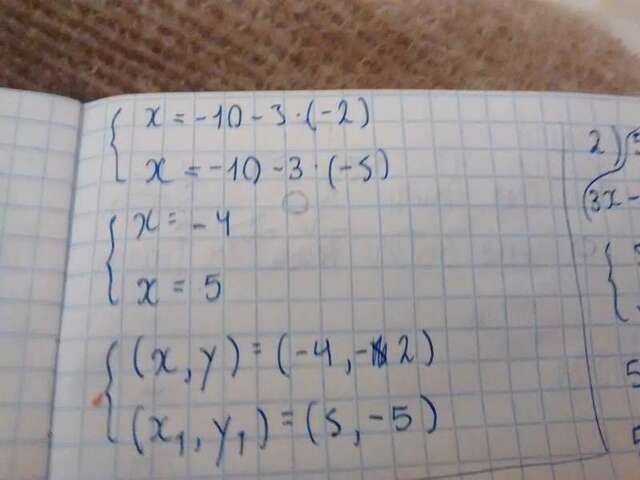 x = -10 - 3 · (-2)
x = -10 - 3 · (-5)
x = -4
x = 5
(x, y) = (-4, -2)
(x₁, y₁) = (5, -5)
2)
(3x -
5